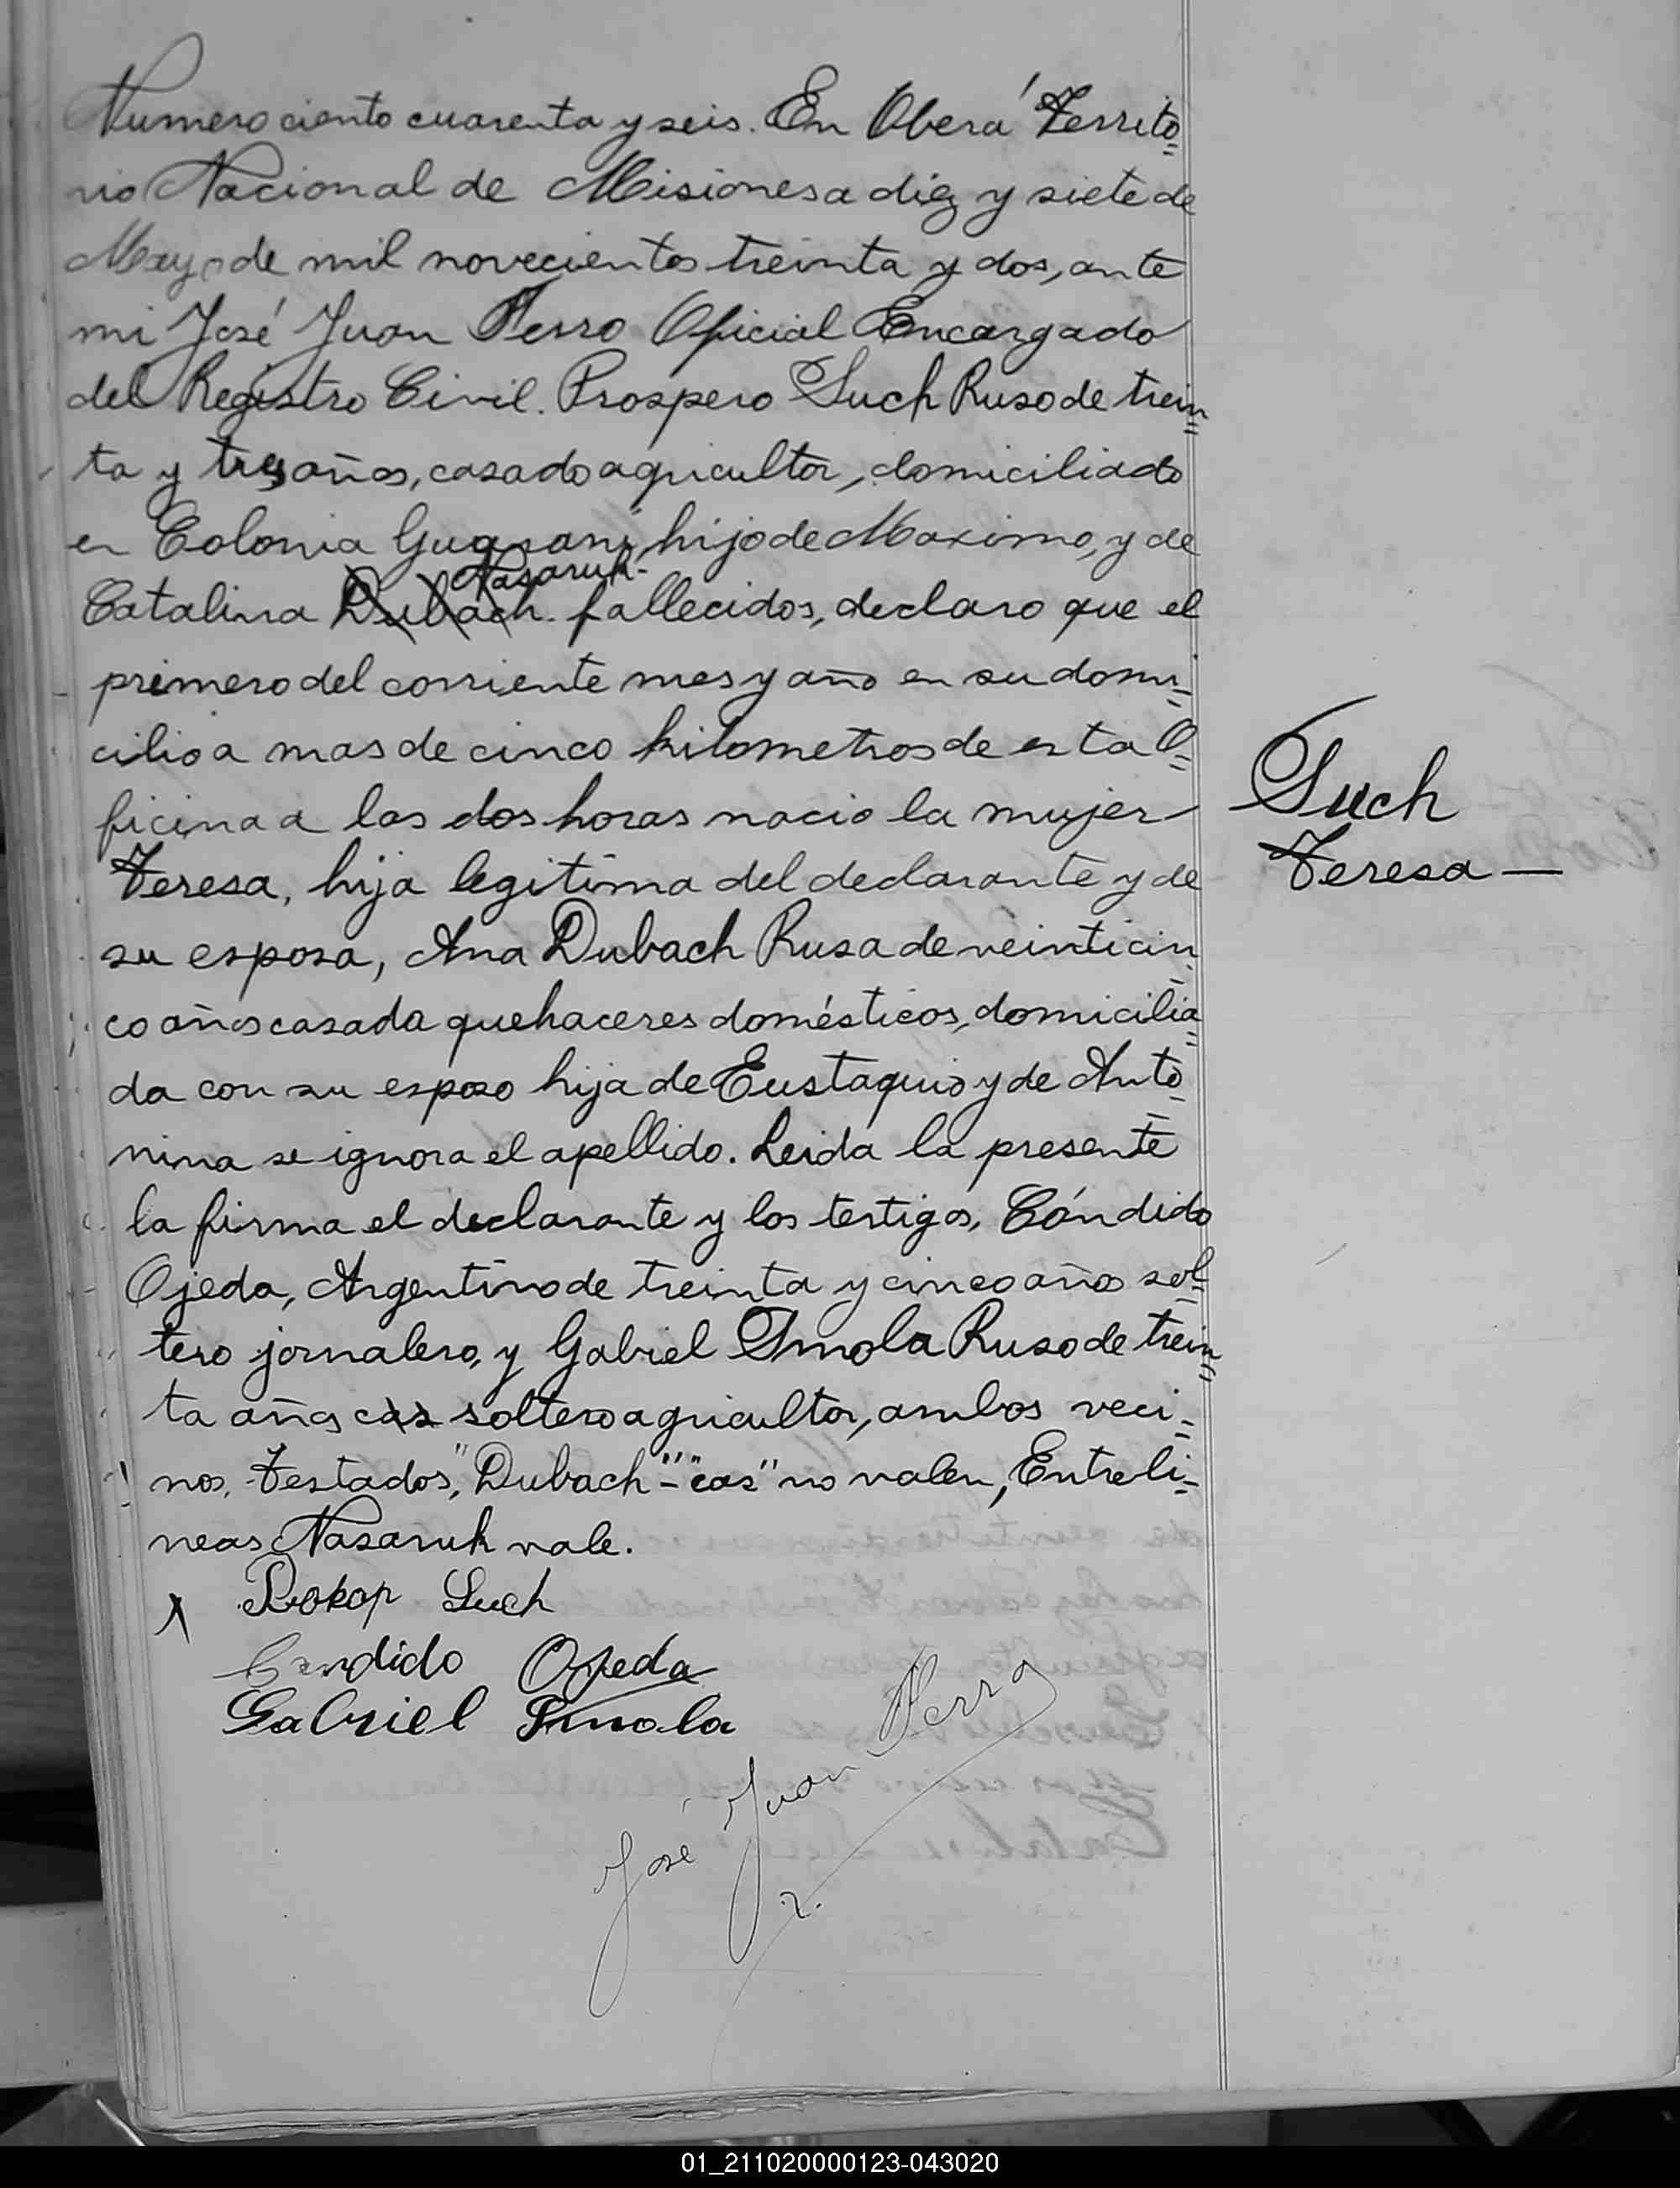 Numero ciento cuarenta y seis. En Oberá Territo=
rio Nacional de Misiones a diez y siete de
Mayo de mil novecientos treinta y dos, ante
mi José Juan Ferro Oficial Encargado
del Registro Civil. Prospero Such Ruso de trein=
ta y tres años, casado agricultor, domiciliado
en Colonia Guarani, hijo de Maximo, y de
Nasaruk-
Catalina Dubach. fallecidos, declaro que el
primero del corriente mes y año en su domi=
cilio a mas de cinco kilometros de esta O=
ficina a las dos horas nacio la mujer
Such
Teresa, hija legitima del declarante y de
Teresa —
su esposa, Ana Dubach Rusa de veinticin=
co años casada quehaceres domésticos, domicilia=
da con su esposo hija de Eustaquio y de Anto=
nina se ignora el apellido. Leida la presente
la firma el declarante y los testigos, Cándido
Ojeda, Argentino de treinta y cinco años sol=
tero jornalero, y Gabriel Smola Ruso de trein=
ta años cas soltero agricultor, ambos veci=
nos. Testados, "Dubach"-"cas" no valen, Entreli=
neas Nasaruk vale.
Prokop Such
Candido Ojeda
Gabriel Smola
José Juan Ferro